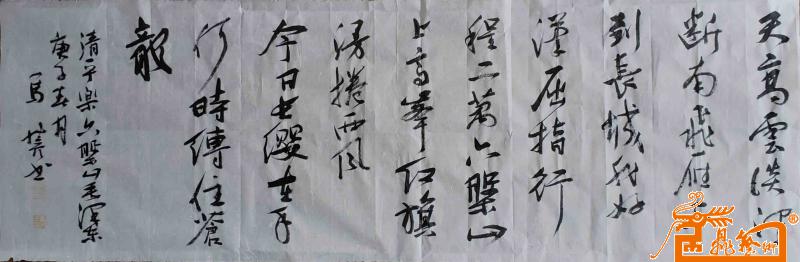 天高雲淡望
断南飛雁不
到長城非好
漢屈指行
程二萬六盤山
上高峯红旗
漫捲西风
今日长缨在手
何時縛住蒼
龍
清平樂六盤山毛澤东
庚子春月
馬书